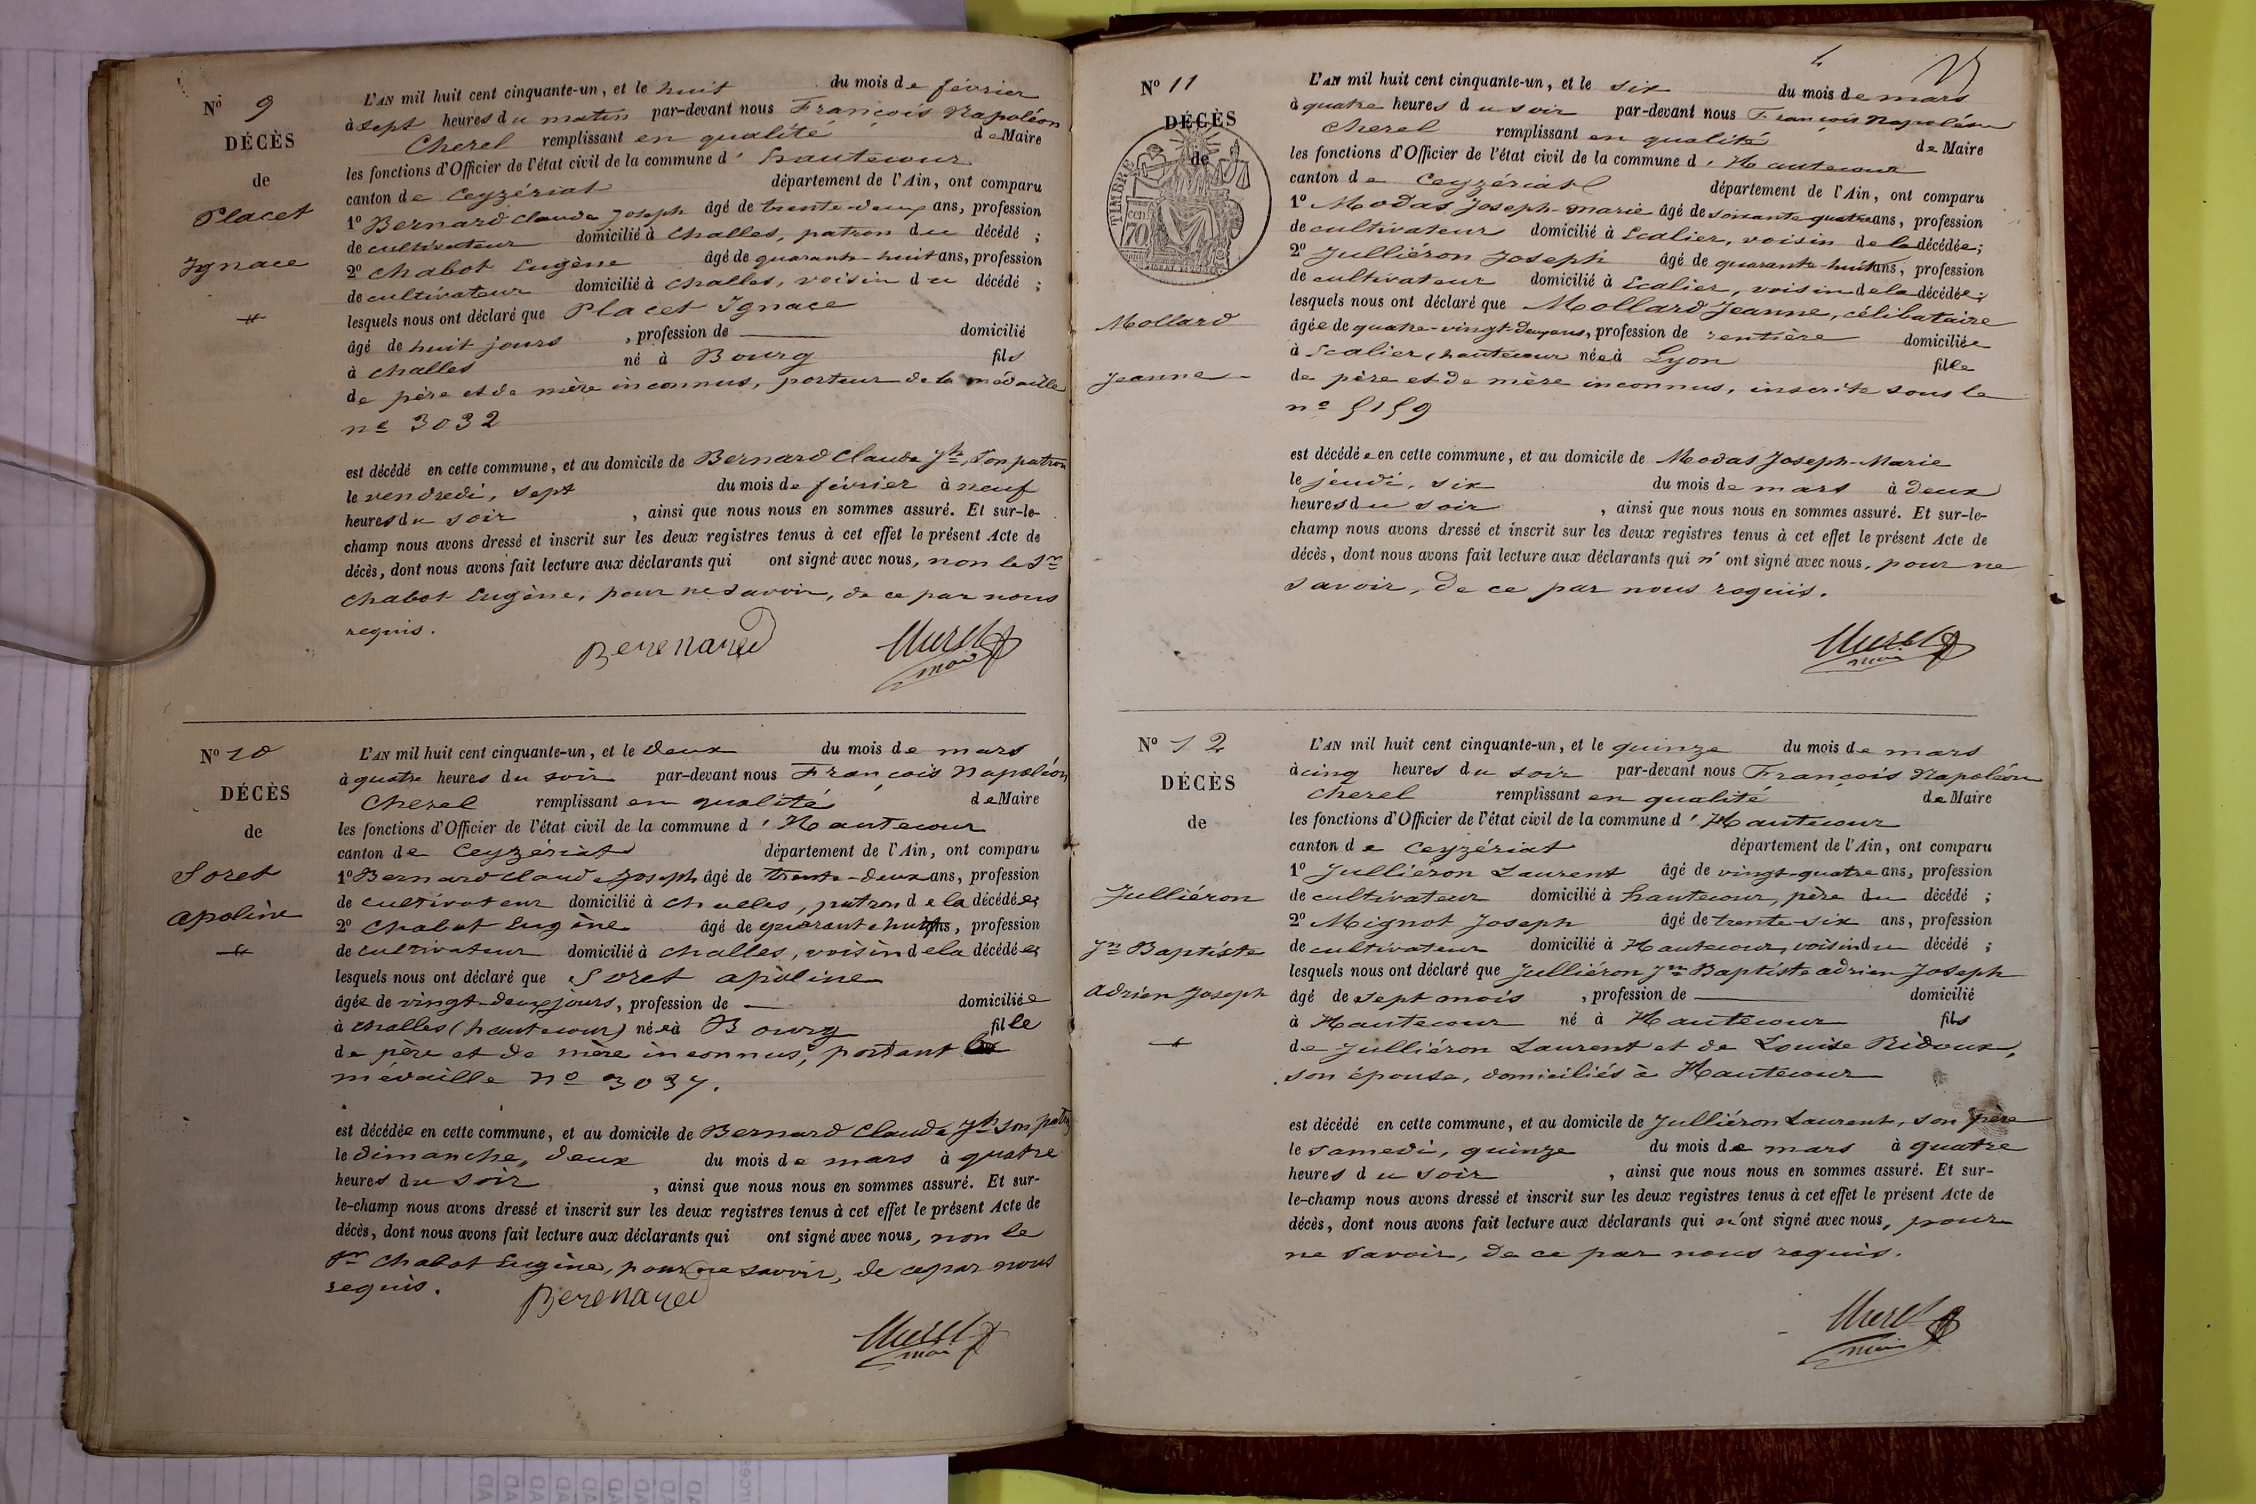 Nº 9
DÉCÈS
de
Placet
Ignace
L'AN mil huit cent cinquante-un, et le huit du mois de février
à sept heures du matin par-devant nous François Napoléon
Cherel remplissant en qualité de Maire
les fonctions d'Officier de l'état civil de la commune d'hautecour
canton de Ceyzériat département de l'Ain, ont comparu
1º Bernard Claude Joseph âgé de trente-deux ans, profession
de cultivateur domicilié à Challes, patron du décédé ;
2º Chabot Eugène âgé de quarante-huit ans, profession
de cultivateur domicilié à Challes, voisin du décédé ;
lesquels nous ont déclaré que Placet Ignace
âgé de huit jours , profession de domicilié
à Challes né à Bourg fils
de père et de mère inconnus, porteur de la médaille
nº 3032
est décédé en cette commune, et au domicile de Bernard Claude Jh, son patron
le vendredi, sept du mois de février à neuf
heures du soir , ainsi que nous nous en sommes assuré. Et sur-le-
champ nous avons dressé et inscrit sur les deux registres tenus à cet effet le présent Acte de
décès, dont nous avons fait lecture aux déclarants qui ont signé avec nous, non le Sr
Chabot Eugène, pour ne savoir, de ce par nous
requis.
Berenard
maire
Nº 10
DÉCÈS
de
Soret
apoline
L'AN mil huit cent cinquante-un, et le deux du mois de mars
à quatre heures du soir par-devant nous François Napoléon
Cherel remplissant en qualité de Maire
les fonctions d'Officier de l'état civil de la commune d'Hautecour
canton de Ceyzériat département de l'Ain, ont comparu
1º Bernard Claude Joseph âgé de trente-deux ans, profession
de cultivateur domicilié à Challes, patron de la décédée;
2º Chabot Eugène âgé de quarante huit ans, profession
de cultivateur domicilié à Challes, voisin de la décédée;
lesquels nous ont déclaré que Soret apoline
âgée de vingt-deux jours, profession de domiciliée
à Challes (hautecour) née à Bourg fille
de père et de mère inconnus, portant la
médaille nº 3037.
est décédée en cette commune, et au domicile de Bernard Claude Jh son patron
le dimanche, deux du mois de mars à quatre
heures du soir , ainsi que nous nous en sommes assuré. Et sur-
le-champ nous avons dressé et inscrit sur les deux registres tenus à cet effet le présent Acte de
décès, dont nous avons fait lecture aux déclarants qui ont signé avec nous, non le
Sr Chabot Eugène, pour ne savoir, de ce par nous
requis.
Berenard
maire
Nº 11
DÉCÈS
de
TIMBRE
70
Mollard
Jeanne
L'AN mil huit cent cinquante-un, et le six du mois de mars
à quatre heures du soir par-devant nous François Napoléon
Cherel remplissant en qualité de Maire
les fonctions d'Officier de l'état civil de la commune d'Hautecour
canton de Ceyzériat département de l'Ain, ont comparu
1º Modas Joseph-Marie âgé de soixante quatre ans, profession
de cultivateur domicilié à Scalier, voisin de la décédée;
2º Julliéron Joseph âgé de quarante-huit ans, profession
de cultivateur domicilié à Scalier, voisin de la décédée;
lesquels nous ont déclaré que Mollard Jeanne, célibataire
âgée de quatre-vingt-deux ans, profession de rentière domiciliée
à Scalier, hautecour née à Lyon fille
de père et de mère inconnus, inscrite sous le
nº 5159
est décédée en cette commune, et au domicile de Modas Joseph-Marie
le jeudi, six du mois de mars à deux
heures du soir , ainsi que nous nous en sommes assuré. Et sur-le-
champ nous avons dressé et inscrit sur les deux registres tenus à cet effet le présent Acte de
décès, dont nous avons fait lecture aux déclarants qui n'ont signé avec nous, pour ne
savoir, de ce par nous requis.
maire
Nº 12
DÉCÈS
de
Julliéron
Jn Baptiste
Adrien Joseph
L'AN mil huit cent cinquante-un, et le quinze du mois de mars
à cinq heures du soir par-devant nous François Napoléon
Cherel remplissant en qualité de Maire
les fonctions d'Officier de l'état civil de la commune d'Hautecour
canton de Ceyzériat département de l'Ain, ont comparu
1º Julliéron Laurent âgé de vingt-quatre ans, profession
de cultivateur domicilié à hautecour, père du décédé ;
2º Mignot Joseph âgé de trente-six ans, profession
de cultivateur domicilié à Hautecour, voisin du décédé ;
lesquels nous ont déclaré que Julliéron Jn Baptiste adrien Joseph
âgé de sept mois , profession de domicilié
à Hautecour né à Hautecour fils
de Julliéron Laurent et de Louise Ridoux,
son épouse, domiciliés à Hautecour
est décédé en cette commune, et au domicile de Julliéron Laurent, son père
le samedi, quinze du mois de mars à quatre
heures du soir , ainsi que nous nous en sommes assuré. Et sur-
le-champ nous avons dressé et inscrit sur les deux registres tenus à cet effet le présent Acte de
décès, dont nous avons fait lecture aux déclarants qui n'ont signé avec nous, pour
ne savoir, de ce par nous requis.
maire